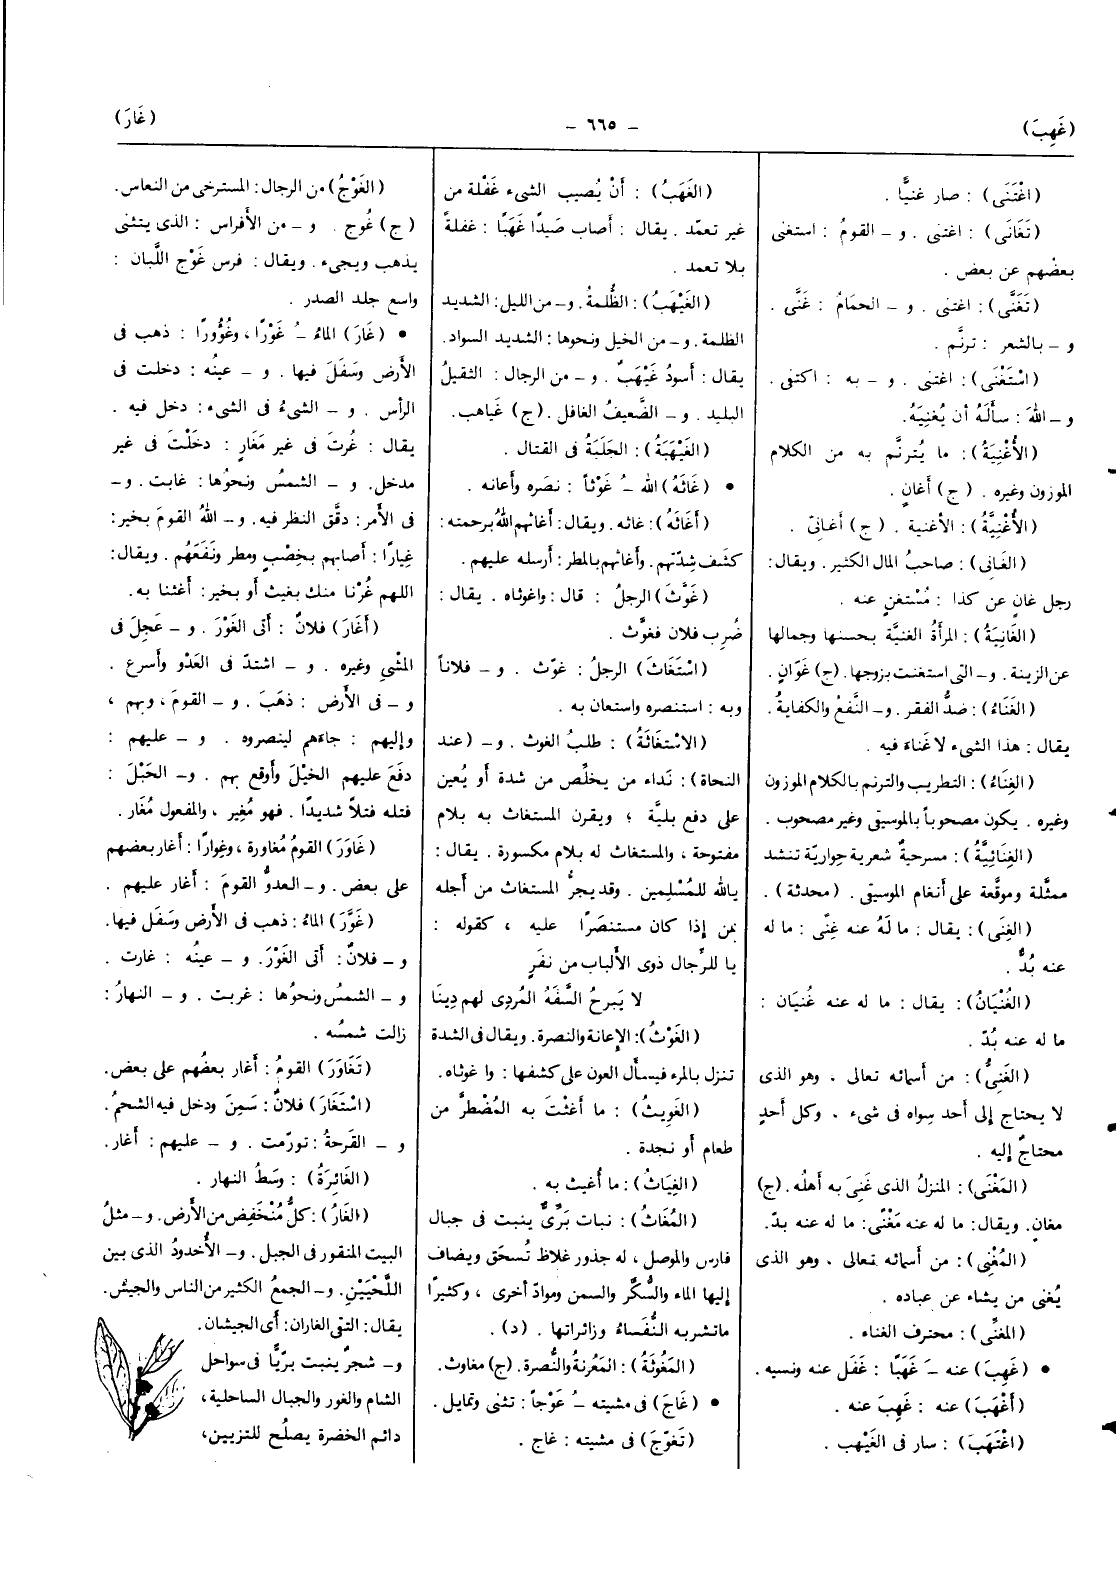 (غَهِبَ)
- ٦٦٥ -
(غَارَ)
(اغْتَنَى) : صار غنيًّا .
(تَغَانَى) : اغتنى . و – القومُ : استغنى
بعضُهم عن بعض .
(تَغَنَّى) : اغتنى . و – الحمَامُ : غَنَّى .
و – بالشعر : ترنَّم .
(اسْتَغْنَى) : اغتنى . و – به : اكتفى .
و – اللهَ : سألَهُ أن يُغنِيَهُ.
(الأُغْنِيَةُ) : ما يُترنَّم به من الكلام
الموزون وغيره . (ج) أغانٍ .
(الأُغْنِيَّةُ) : الأغنية . (ج) أغانىّ .
(الغَانِى) : صاحبُ المال الكثير . ويقال:
رجل غانٍ عن كذا : مُسْتغنٍ عنه .
(الغَانِيَةُ) : المرأةُ الغنيَّة بحسنها وجمالها
عن الزينة . و– التى استغنت بزوجها. (ج) غَوَانٍ .
(الغَنَاءُ) : ضدُّ الفقر . و– النَّفعُ والكفايةُ .
يقال : هذا الشىء لا غَناءَ فيه .
(الغِنَاءُ) : التطريب والترنم بالكلام الموزون
وغيره . يكون مصحوباً بالموسيقى وغير مصحوب .
(الغِنَائِيَّةُ) : مسرحيةٌ شعرية حِواريّة تنشد
ممثَّلة وموقَّعة على أنغام الموسيقى . (محدثة) .
(الغِنَى) : يقال : ما لَهُ عنه غِنًى : ما له
عنه بُدٌّ .
(الغُنْيَانُ) : يقال : ما له عنه غُنيَان :
ما له عنه بُدّ .
(الغَنِىُّ) : من أسمائه تعالى ، وهو الذى
لا يحتاج إلى أحد سِواه فى شىء ، وكل أحدٍ
محتاجٌ إليه .
(المَغْنَى) : المنزلُ الذى غَنِىَ به أهلُه . (ج)
مغانٍ. ويقال: ما له عنه مَغْنًى: ما له عنه بدّ.
(المُغْنِى) : من أسمائه تعالى ، وهو الذى
يُغنى من يشاء عن عباده .
(المغَنِّى) : محترف الغناء .
● (غَهِبَ) عنه –َ غَهَبًا : غَفَل عنه ونسيه .
(أَغْهَبَ) عنه : غَهِبَ عنه .
(اغْتَهَبَ) : سار فى الغَيْهب .
(الغَهَبُ) : أنْ يُصيب الشىء غَفْلة من
غير تعمّد . يقال : أصاب صَيدًا غَهَبًا : غفلةً
بلا تعمد .
(الغَيْهَبُ) : الظُّلمةُ . و– من الليل: الشديد
الظلمة . و– من الخيل ونحوها : الشديد السواد.
يقال : أسودُ غَيْهَبٌ . و – من الرجال : الثقيلُ
البليد . و– الضَّعيفُ الغافل . (ج) غَياهب.
(الغَيْهَبَةُ) : الجَلَبَةُ فى القتال .
● (غَاثَهُ) الله –ُ غَوْثاً : نصَره وأعانه .
(أَغَاثَهُ) : غاثه . ويقال: أغاثهم اللهُ برحمته:
كشَف شِدّتهم. وأغاثهم بالمطر: أرسله عليهم .
(غَوَّثَ) الرجلُ : قال : واغوثاه . يقال :
ضُرِب فلان فغوَّث .
(اسْتَغَاثَ) الرجلُ : غوّث . و – فلاناً
وبه : استنصره واستعان به .
(الاسْتغَاثَةُ) : طلبُ الغوث . و– (عند
النحاة) : نَداء من يخلِّص من شدة أو يُعين
على دفع بليَّة ؛ ويقرن المستغاث به بلام
مفتوحة ، والمستغاث له بلام مكسورة . يقال :
يالله للمُسْلِمين . وقد يجرُّ المستغاث من أجله
بمن إذا كان مستنصَرًا عليه ، كقوله :
يا للرِّجال ذوى الألباب من نفَرٍ
لا يَبرحُ السَّفَهُ المُردِى لهم دِينَا
(الغَوْثُ) : الإعانة والنصرة. ويقال فى الشدة
تنزل بالمرء فيسأل العون على كشفها : وا غوثاه.
(الغَوِيثُ) : ما أغثْتَ به المُضْطرَّ من
طعام أو نجدة .
(الغِيَاثُ) : ما أُغيث به .
(المُغَاثُ) : نبات بَرِّىٌّ ينبت فى جبال
فارس والموصل ، له جذور غلاظ تُسحَق ويضاف
إليها الماء والسُّكّر والسمن وموادّ أخرى ، وكثيرًا
ما تشربه النُّفَساءُ وزائراتها . (د) .
(المَغُوثَةُ) : المَعُونة والنُّصرة. (ج) مغاوث.
● (غَاجَ) فى مشيته –ُ غَوْجاً : تثنى وتمايل .
(تَغَوَّجَ) فى مشيته : غاج .
(الغَوْجُ) من الرجال : المسترخى من النعاس.
(ج) غُوج . و – من الأفراس : الذى يتثنى
يذهب ويجىء . ويقال : فرس غَوْج اللَّبان :
واسع جلد الصدر .
● (غَارَ) الماءُ –ُ غَوْرًا ، وغُؤُورًا : ذهب فى
الأرض وسَفَلَ فيها . و – عينُه : دخلت فى
الرأس . و – الشىءُ فى الشىء : دخل فيه .
يقال : غُرتَ فى غير مَغَارٍ : دخَلْتَ فى غير
مدخل. و – الشمسُ ونحوُها : غابت . و–
فى الأمر: دقَّق النظر فيه . و– اللهُ القومَ بخير:
غِيارًا : أصابهم بخِصْبٍ ومطر ونَفَعَهُم . ويقال:
اللهم غُرْنا منك بغيث أو بخير: أغثنا به.
(أَغَارَ) فلانٌ : أتى الغَوْرَ . و – عَجِلَ فى
المشْىِ وغيره . و – اشتدّ فى العَدْوِ وأسرع .
و – فى الأرض : ذهَبَ . و – القومَ ، وبهم ،
وإليهم : جاءَهم لينصروه . و – عليهم :
دفَعَ عليهم الخيْلَ وأوقع بهم . و– الحَبْلَ :
فتله فتلاً شديدًا . فهو مُغِير ، والمفعول مُغَار .
(غَاوَرَ) القومُ مُغاورة ، وغِوارًا : أغار بعضهم
على بعض . و– العدوُّ القومَ : أغار عليهم .
(غَوَّرَ) الماءُ : ذهب فى الأرض وسَفَل فيها.
و – فلانٌ : أتى الغَوْرَ. و – عينُه : غارت .
و – الشمسُ ونحوُها : غربت . و – النهارُ :
زالت شمسُه .
(تَغَاوَرَ) القومُ : أغار بعضُهم على بعض.
(اسْتَغَارَ) فلانٌ : سَمِنَ ودخل فيه الشحمُ.
و – القَرحةُ : تورّمت . و – عليهم : أغار.
(الغَائِرَةُ) : وسَطُ النهار .
(الغَارُ) : كلُّ مُنْخَفِض من الأرض. و– مثلُ
البيت المنقور فى الجبل . و– الأُخدودُ الذى بين
اللَّحْيَيْنِ. و– الجمعُ الكثير من الناس والجيشُ.
يقال: التقى الغاران: أى الجيشان.
و– شجرٌ ينبت برّيًّا فى سواحل
الشام والغور والجبال الساحلية،
دائم الخضرة يصلُح للتزيين،